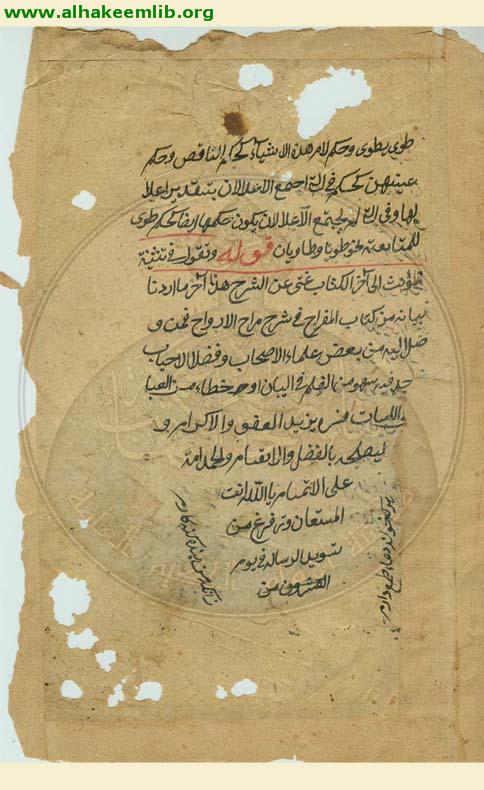 www.alhakeemlib.org
طوى يطوى وحكم لام هذه الاشياء كحكم الناقص وحكم
عينهن كحكم في التى اجتمع الاعلالان بتقدير اعلا
لها وفى التى لم يجتمع الاعلالان يكون حكمها ايضا كحكم طوى
للمتابعة نحو طويا وطاويان قوله وتقول فى تثنية
المؤنث الى آخر الكتاب غنى عن الشرح هذا آخر ما اردنا
بيانه من كتاب المفراح فى شرح مراح الارواح فمن و
صل اليه من بعض علماء الاصحاب وفضلاء الاحباب
سهو من القلم فى البيان او خطاء من
فمن يزيد العفو والاكرام و
ليصلحه بالفضل والانعام والحمد لله
على الاتمام يا الله انت
المستعان وتم فرغ من
تسويد الرساله فى يوم
العشرون من